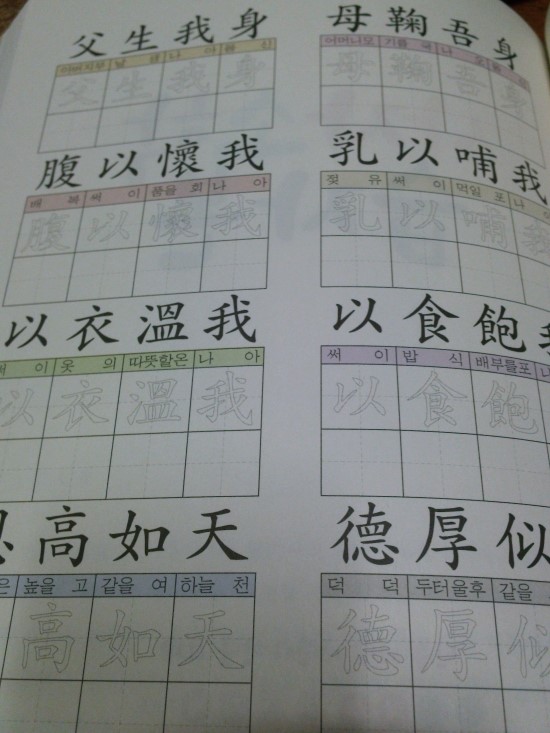 父生我身
아버지부 날 생 나 아 몸 신
父生我身
母鞠吾身
어머니모 기를 국 나 오
母鞠吾身
腹以懷我
배 복 써 이 품을 회 나 아
腹以懷我
乳以哺我
젖 유 써 이 먹일 포 나
乳以哺我
以衣溫我
써 이 옷 의 따뜻할온 나 아
以衣溫我
以食飽我
써 이 밥 식 배부를포 나
以食飽
高如天
은 높을 고 같을 여 하늘 천
高如天
德厚似
덕 덕 두터울후 같을
德厚似